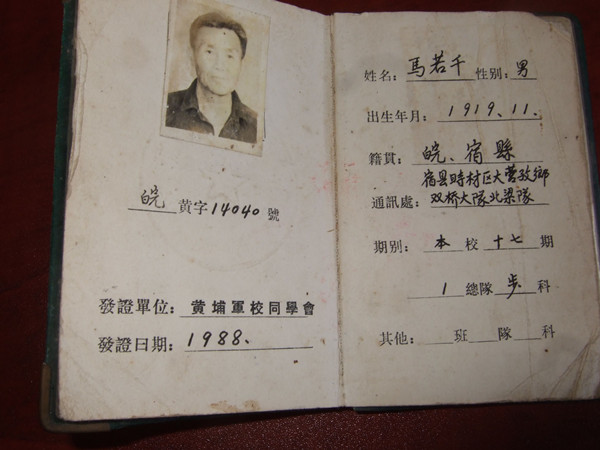 皖 黄字 14040 號
發證單位: 黄埔軍校同學會
發證日期: 1988.
姓名: 馬若千 性别: 男
出生年月: 1919.11.
籍貫: 皖、宿縣
宿县時村区大营孜鄉
通訊處: 双桥大隊北梁隊
期别: 本 校 十七 期
1 總隊 步 科
其他: 班 隊 科